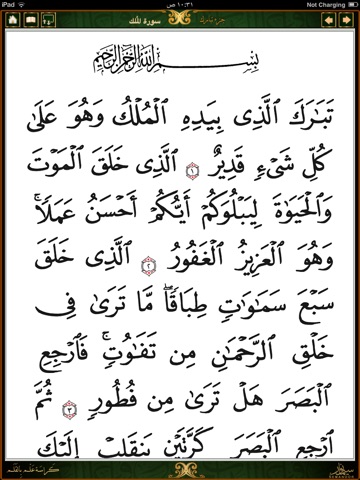 iPad ١٠:٣١ ص Not Charging
سورة الملك
بِسْمِ ٱللَّهِ ٱلرَّحْمَٰنِ ٱلرَّحِيمِ
تَبَٰرَكَ ٱلَّذِى بِيَدِهِ ٱلْمُلْكُ وَهُوَ عَلَىٰ
كُلِّ شَىْءٍ قَدِيرٌ ١ ٱلَّذِى خَلَقَ ٱلْمَوْتَ
وَٱلْحَيَوٰةَ لِيَبْلُوَكُمْ أَيُّكُمْ أَحْسَنُ عَمَلًا ۚ
وَهُوَ ٱلْعَزِيزُ ٱلْغَفُورُ ٢ ٱلَّذِى خَلَقَ
سَبْعَ سَمَٰوَٰتٍ طِبَاقًا ۖ مَّا تَرَىٰ فِى
خَلْقِ ٱلرَّحْمَٰنِ مِن تَفَٰوُتٍ ۖ فَٱرْجِعِ
ٱلْبَصَرَ هَلْ تَرَىٰ مِن فُطُورٍ ٣ ثُمَّ
ٱرْجِعِ ٱلْبَصَرَ كَرَّتَيْنِ يَنقَلِبْ إِلَيْكَ
كراسة علم بالقلم